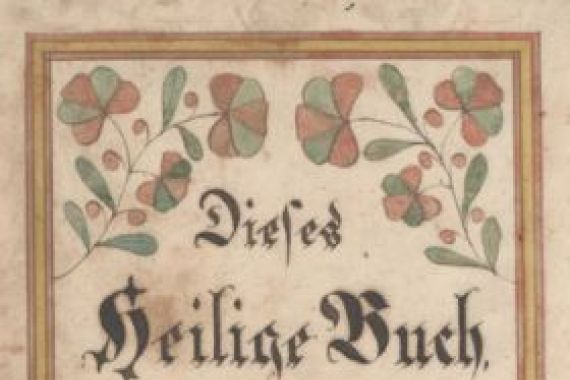 Dieſes
Heilige Buch,